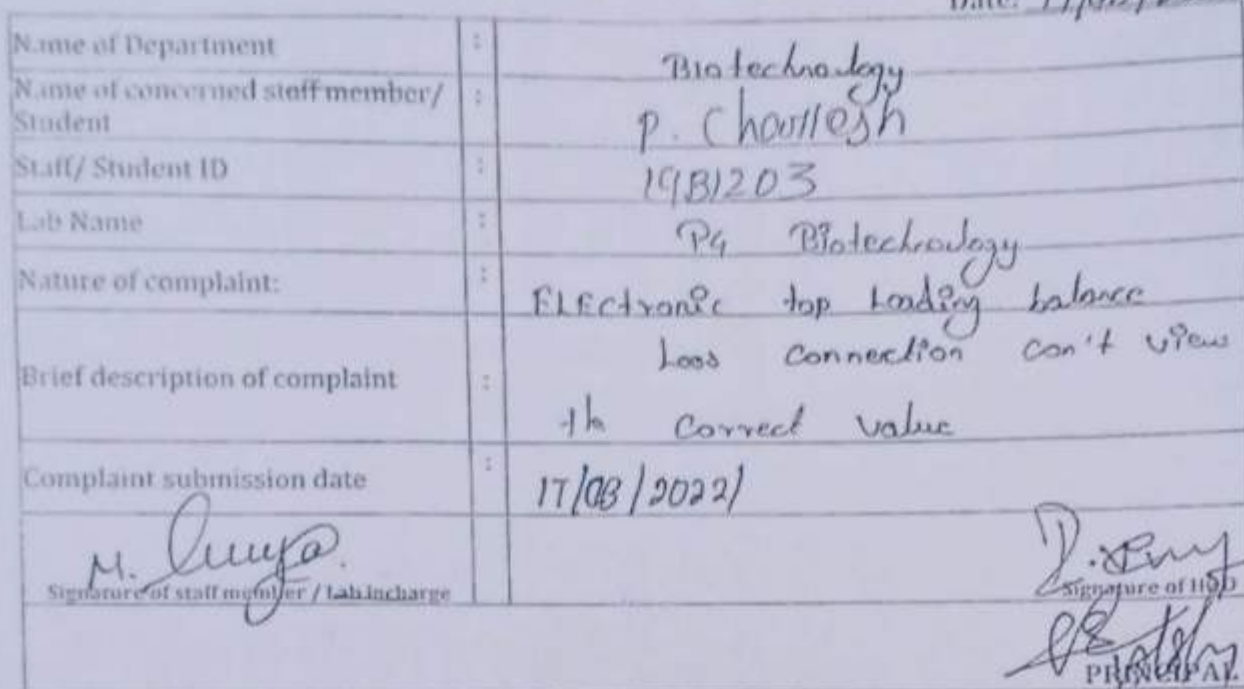 Date:
Name of Department : Biotechnology
Name of concerned staff member/ Student : P.
Staff/ Student ID : 19B1203
Lab Name : PG Biotechnology
Nature of complaint: : ELEctronic top Loading balance
Brief description of complaint : Loos connection can't view
th correct value
Complaint submission date : 17/08/2022/
M.
Signature of staff member / Lab incharge
Signature of HOD
PRINCIPAL